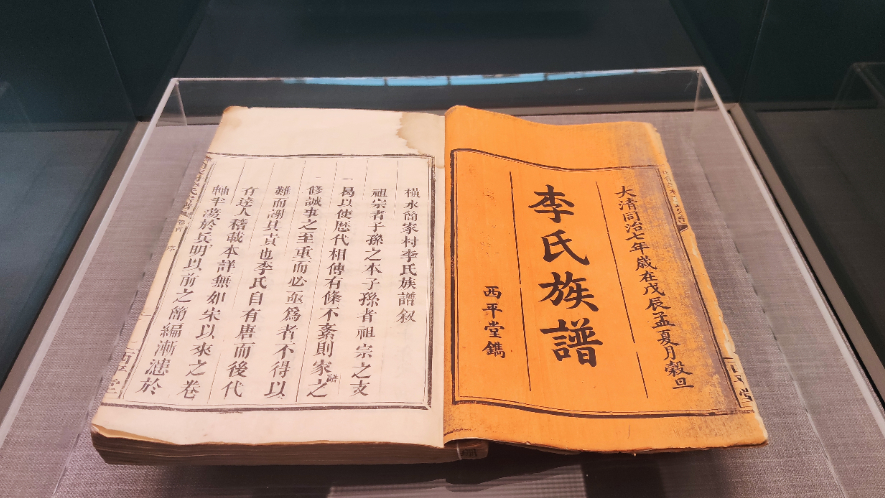 大清同治七年歲在戊辰孟夏月穀旦
李氏族譜
西平堂鐫
橫水家村李氏族譜叙
祖宗者子孫之本子孫者祖宗之支
曷以使歴代相傳有條不紊則家之譜
修誠事之至重而必亟爲者不得以
難而謝其責也李氏自有唐而後代
有達人稽載本詳無如宋以來之卷
軸半蕩於兵明以前之簡編漸漶於